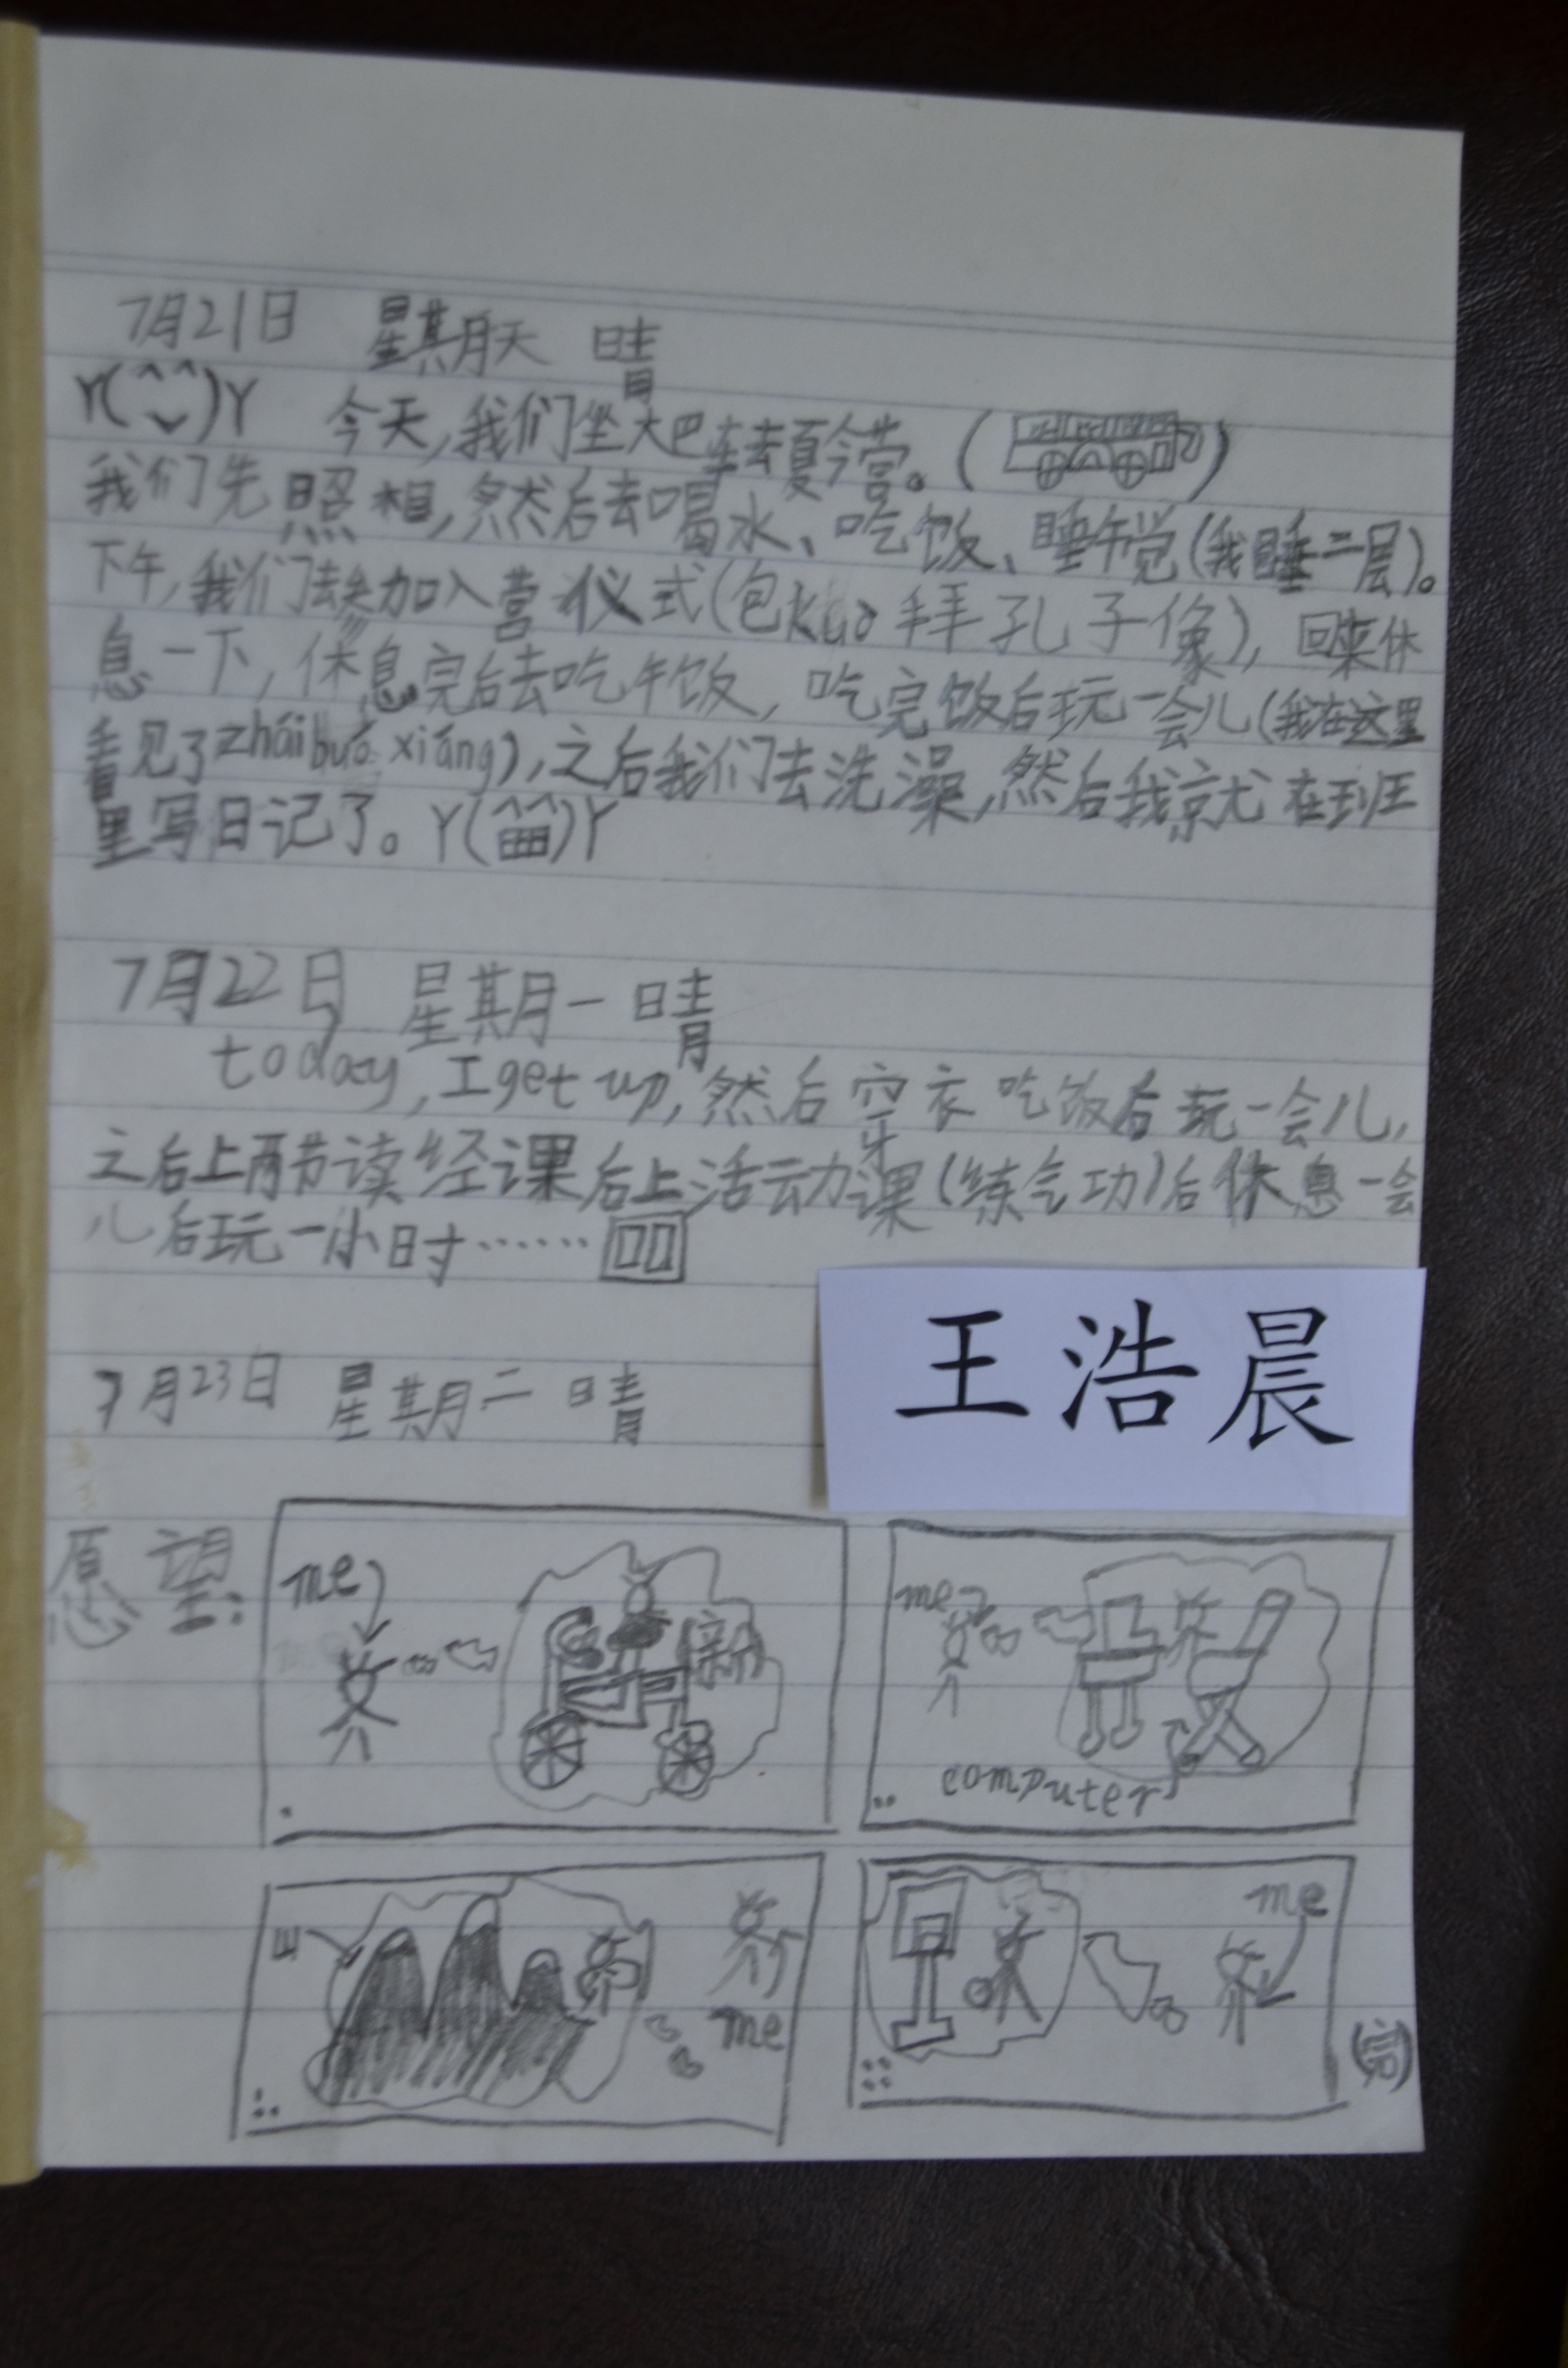 7月21日 星期天 晴
Y(^ᴗ^)Y 今天,我们坐大巴车去夏令营。( )
我们先照相,然后去喝水、吃饭、睡午觉(我睡二层)。
下午,我们去参加入营仪式(包kuò拜孔子像),回来休
息一下,休息完后去吃午饭,吃完饭后玩一会儿(我在这里
看见了zháibuō xiáng),之后我们去洗澡,然后我就在班
里写日记了。Y(^^)Y
7月22日 星期一 晴
today, I get up, 然后穿衣吃饭后玩一会儿,
之后上两节读经课后上活动课(练气功)后休息一会
儿后玩一小时……
王浩晨
7月23日 星期二 晴
愿望:
me
新
me
computer
me
me
(完)